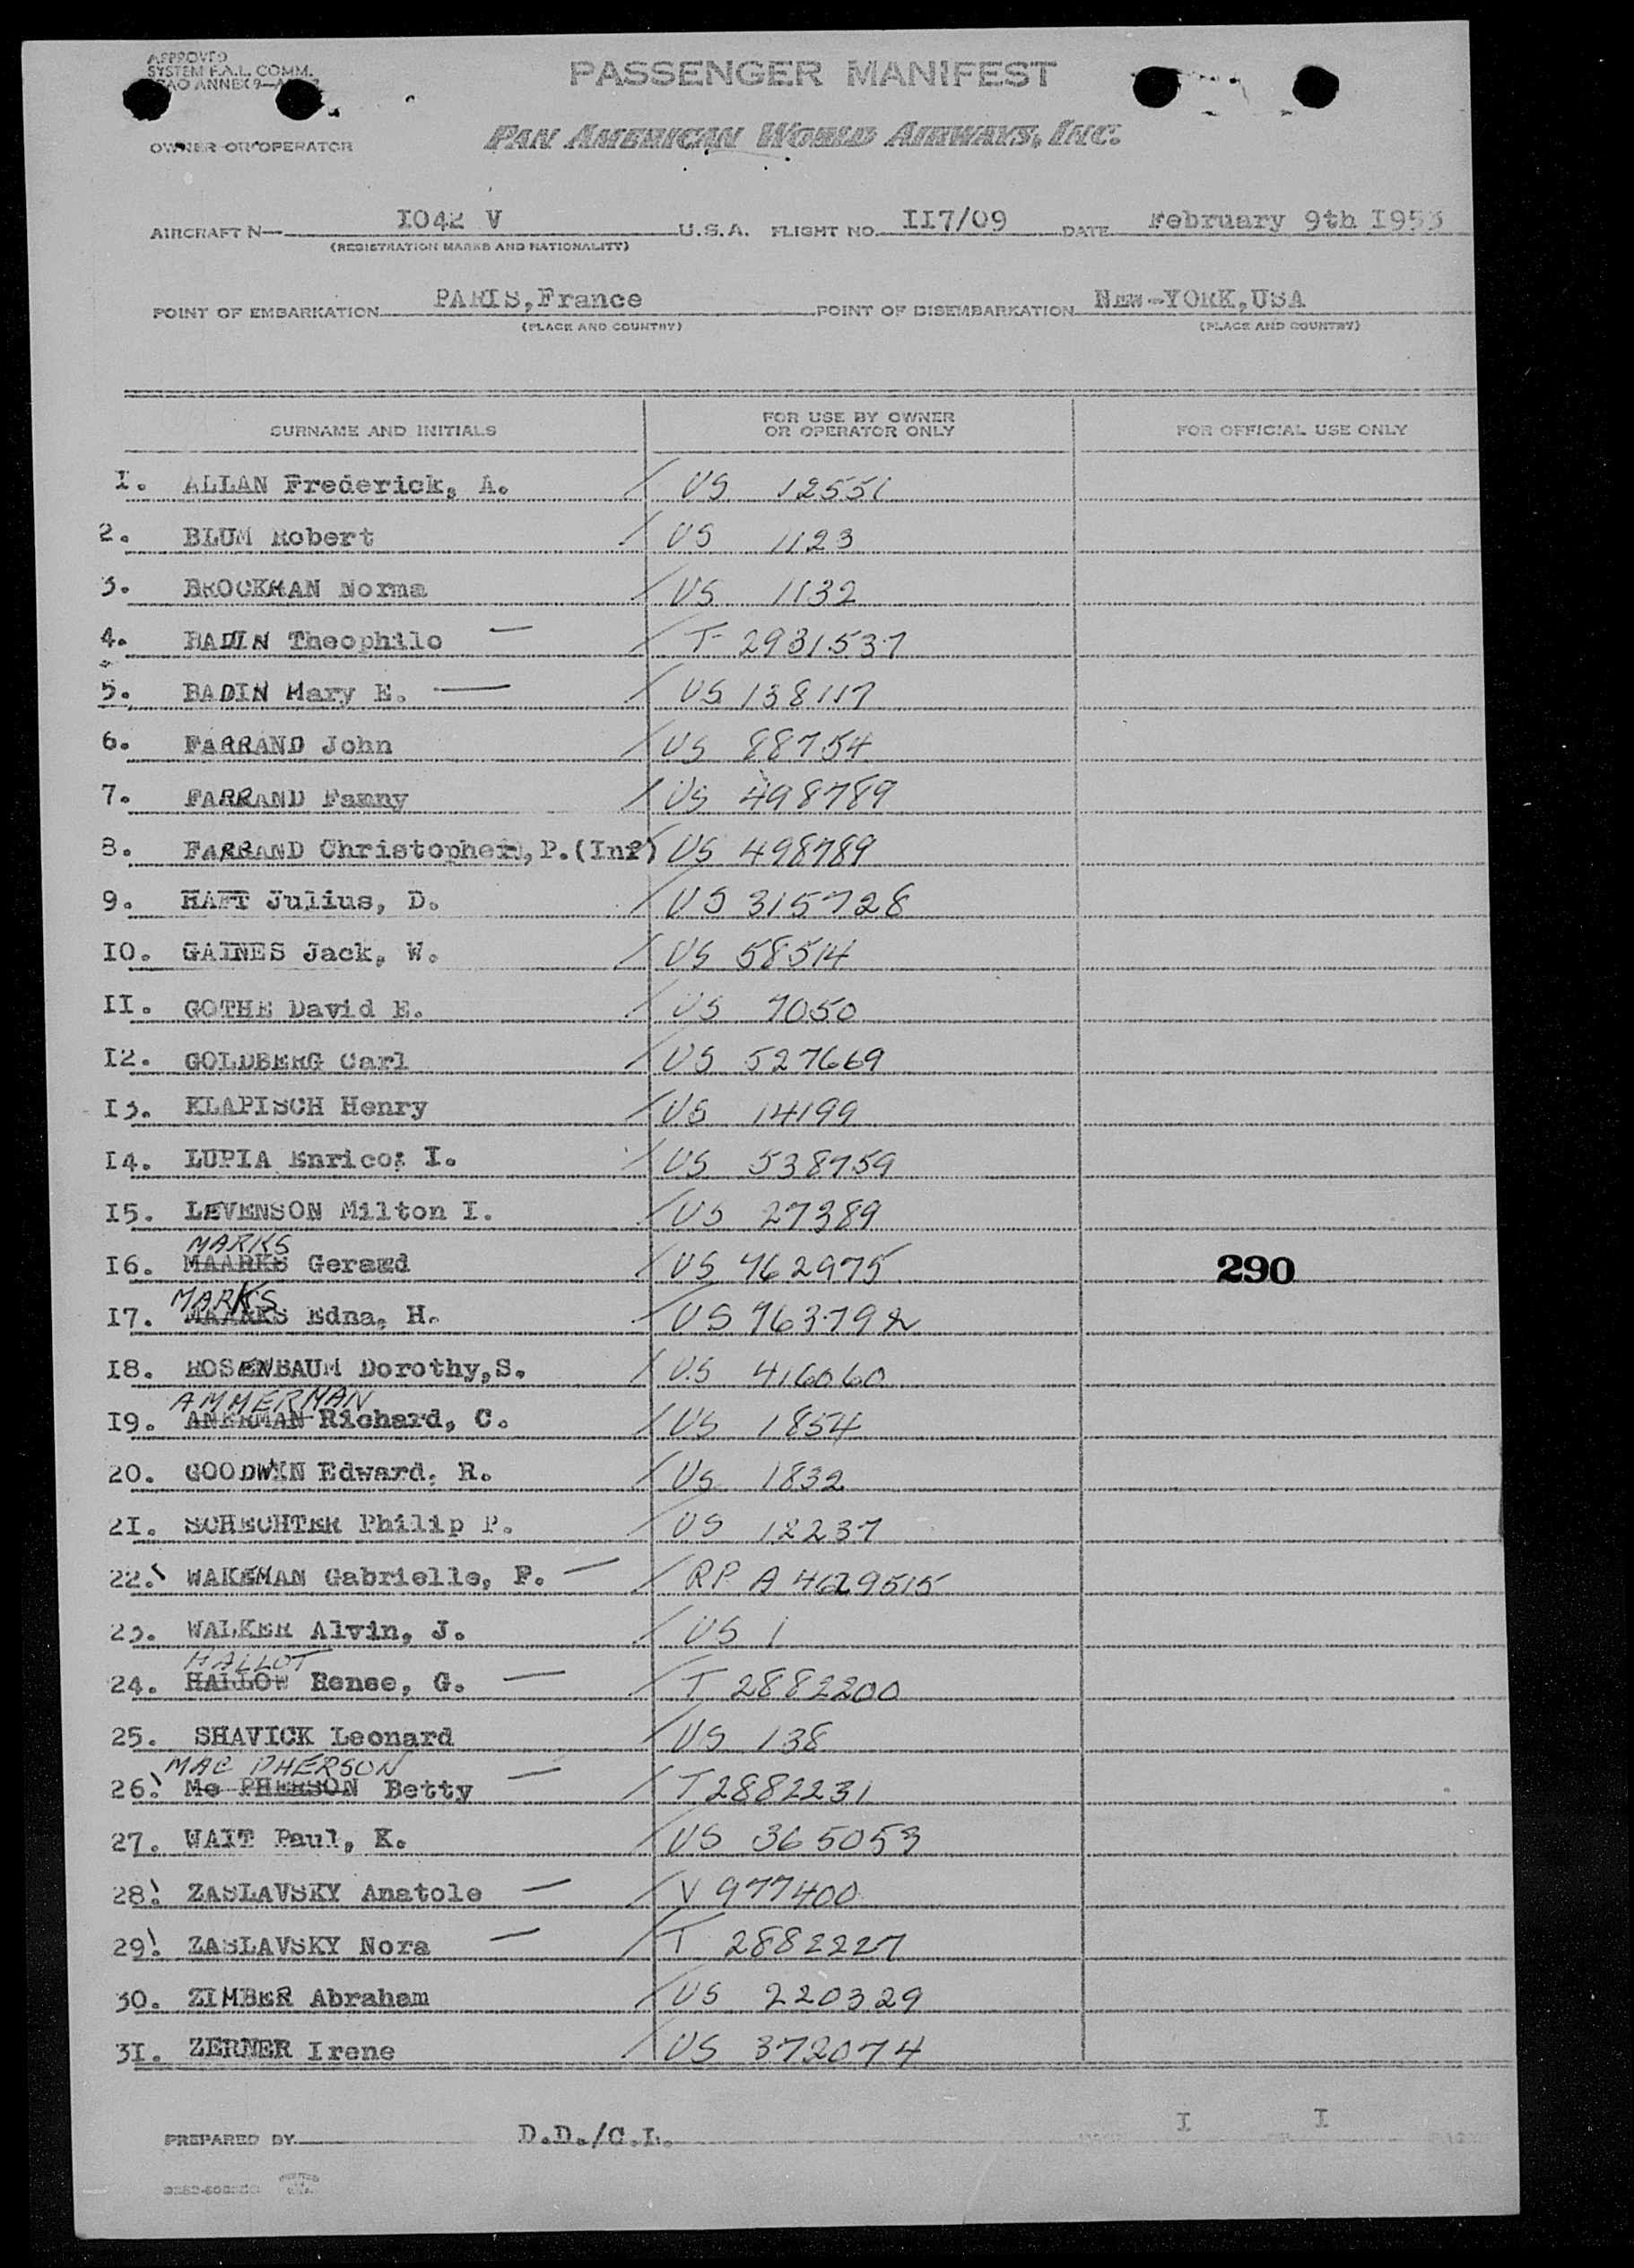 APPROVED
SYSTEM F.A.L. COMM.
ANNEX 9
PASSENGER MANIFEST
OWNER OR OPERATOR
PAN AMERICAN WORLD AIRWAYS, INC.
AIRCRAFT N— I042 V U.S.A. FLIGHT NO. II7/09 DATE February 9th I953
(REGISTRATION MARKS AND NATIONALITY)
POINT OF EMBARKATION PARIS,France POINT OF DISEMBARKATION NEW-YORK,USA
(PLACE AND COUNTRY) (PLACE AND COUNTRY)
SURNAME AND INITIALS FOR USE BY OWNER OR OPERATOR ONLY FOR OFFICIAL USE ONLY
I. ALLAN Frederick, A. / US 12551
2. BLUM Robert / US 1123
3. BROCKMAN Norma / US 1132
4. BADIN Theophilo — / T- 2931537
5. BADIN Mary E. — / US 138117
6. FARRAND John / US 88754
7. FARRAND Fanny / US 498789
8. FARRAND Christopher, P.(Inf) US 498789
9. HAFT Julius, D. / US 315728
I0. GAINES Jack, W. / US 58514
II. GOTHE David E. / US 7050
I2. GOLDBERG Carl / US 527669
I3. KLAPISCH Henry / US 14199
I4. LUPIA Enrico: I. / US 538759
I5. LEVENSON Milton I. / US 27389
MARKS
I6. MAARKS Gerard / US 762975 290
MARKS
I7. MAARKS Edna, H. / US 763792
I8. ROSENBAUM Dorothy,S. / US 416060
AMMERMAN
I9. AMERMAN Richard, C. / US 1854
20. GOODWIN Edward. R. / US 1832
2I. SCHECHTER Philip P. / US 12237
22. WAKEMAN Gabrielle, F. — / RP A 4629515
23. WALKER Alvin, J. / US 1
HALLOT
24. HALLOW Renee, G. — / T 2882200
25. SHAVICK Leonard / US 138
MAC PHERSON
26. Mc PHERSON Betty — / T2882231
27. WAIT Paul, K. / US 365053
28. ZASLAVSKY Anatole — / V 977400
29. ZASLAVSKY Nora — / T 2882227
30. ZIMBER Abraham / US 220329
3I. ZERNER Irene / US 372074
PREPARED BY D.D./C.L. I I